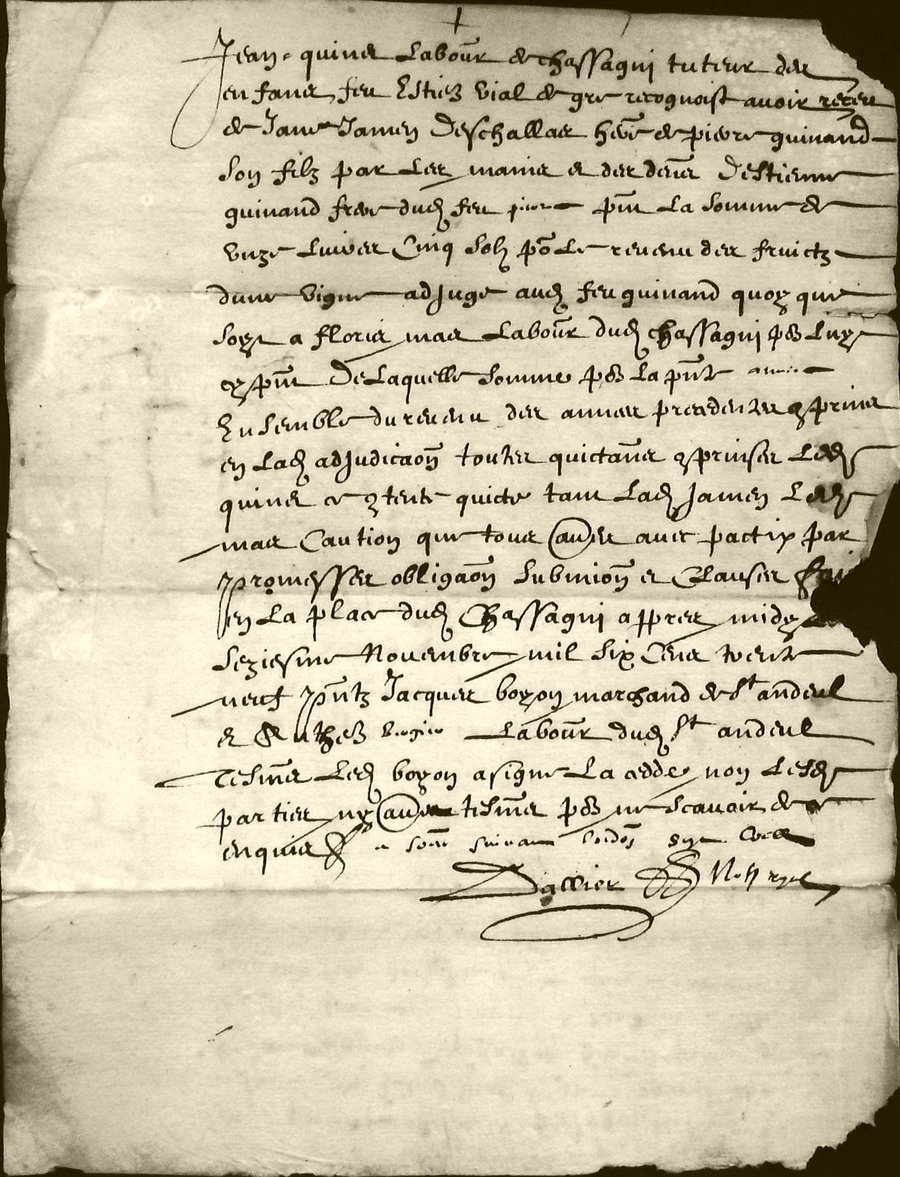 Jean quinet Labour de chassagni tuteur des
enfans feu Estiez vial de gre recognoist avoir receu
de Jane Jamen deschallas here de pierre guinand
son filz par les mains et des deners destienne
guinand frere dud feu pierre pnt La somme de
unze Livres Cinq solz po Le revenu des fruictz
dune vigne adjuge aud feu guinand quoy que
soyt a floris mas Labour dud chassagni po Luy
cy pnt de Laquelle somme po La pnte annee
Ensemble du revenu des annees precedentes comprins
en Lad adjudicaon toutes quictances comprinses Led
quinet ce contente quicte tant Lad Jamen Led
mas Caution que tous aues avec pactix par
promesses obligaon submion et Clauses
en La place dud Chassagni appres midy
seziesme Novembre mil six Cens trente
neuf pntz Jacques boyon marchand de st andeul
et vergier Labour dud st andeul
tesmns Led boyon a signe La cedde non Lesd
parties ny au tesmns po ne scavoir de ce
enquis